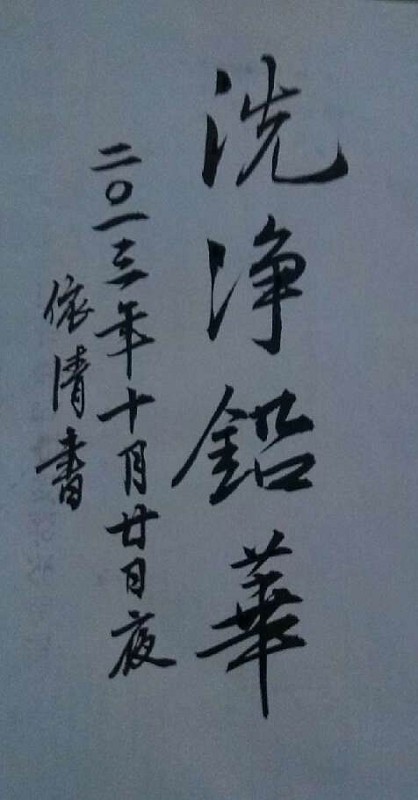 洗净鉛華
二〇一三年十月廿日夜
依清書